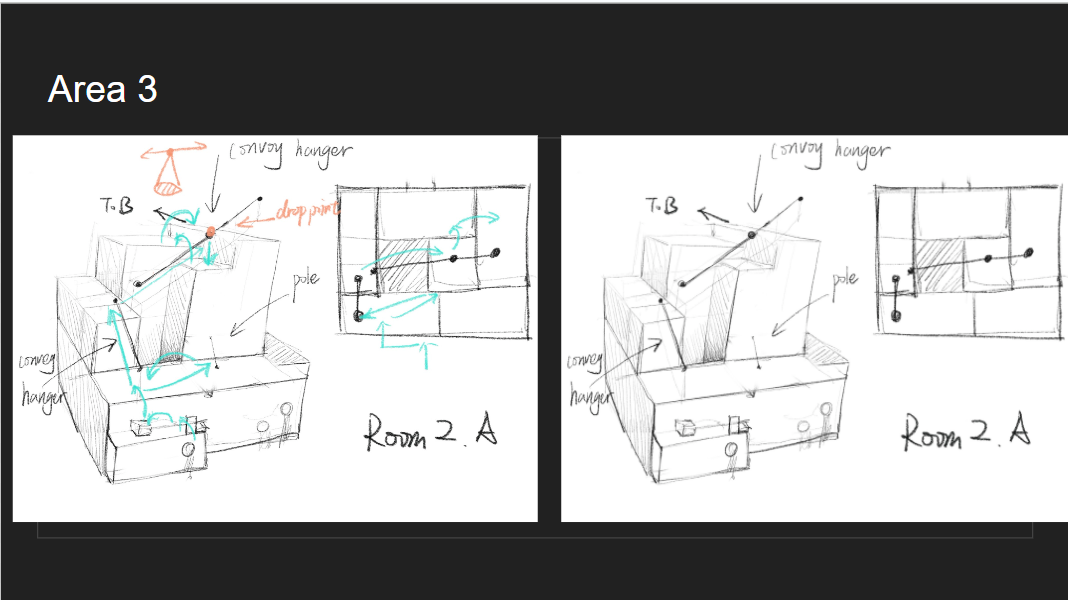 Area 3
convoy hanger
T.B
drop point
pole
convey
hanger
Room 2. A
convoy hanger
T.B
pole
convey
hanger
Room 2. A